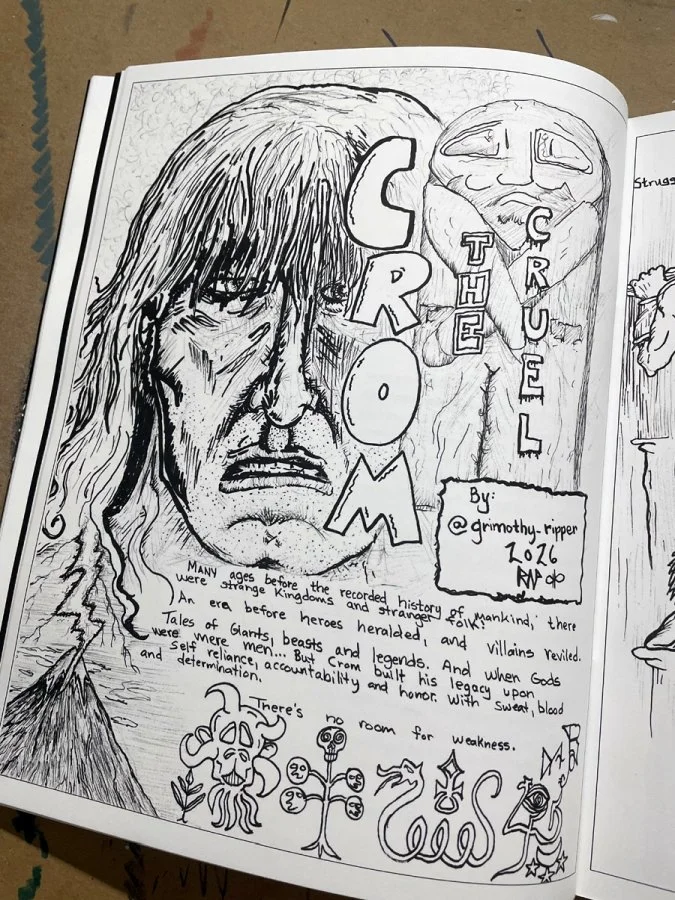 CROM
THE
CRUEL
By:
@grimothy_ripper
2026
MANY ages before the recorded history of mankind, there
were strange Kingdoms and stranger folk.
An era before heroes heralded, and villains reviled.
Tales of Giants, beasts and legends. And when Gods
were mere men... But Crom built his legacy upon
self reliance, accountability and honor. With sweat, blood
and determination.
There's no room for weakness.